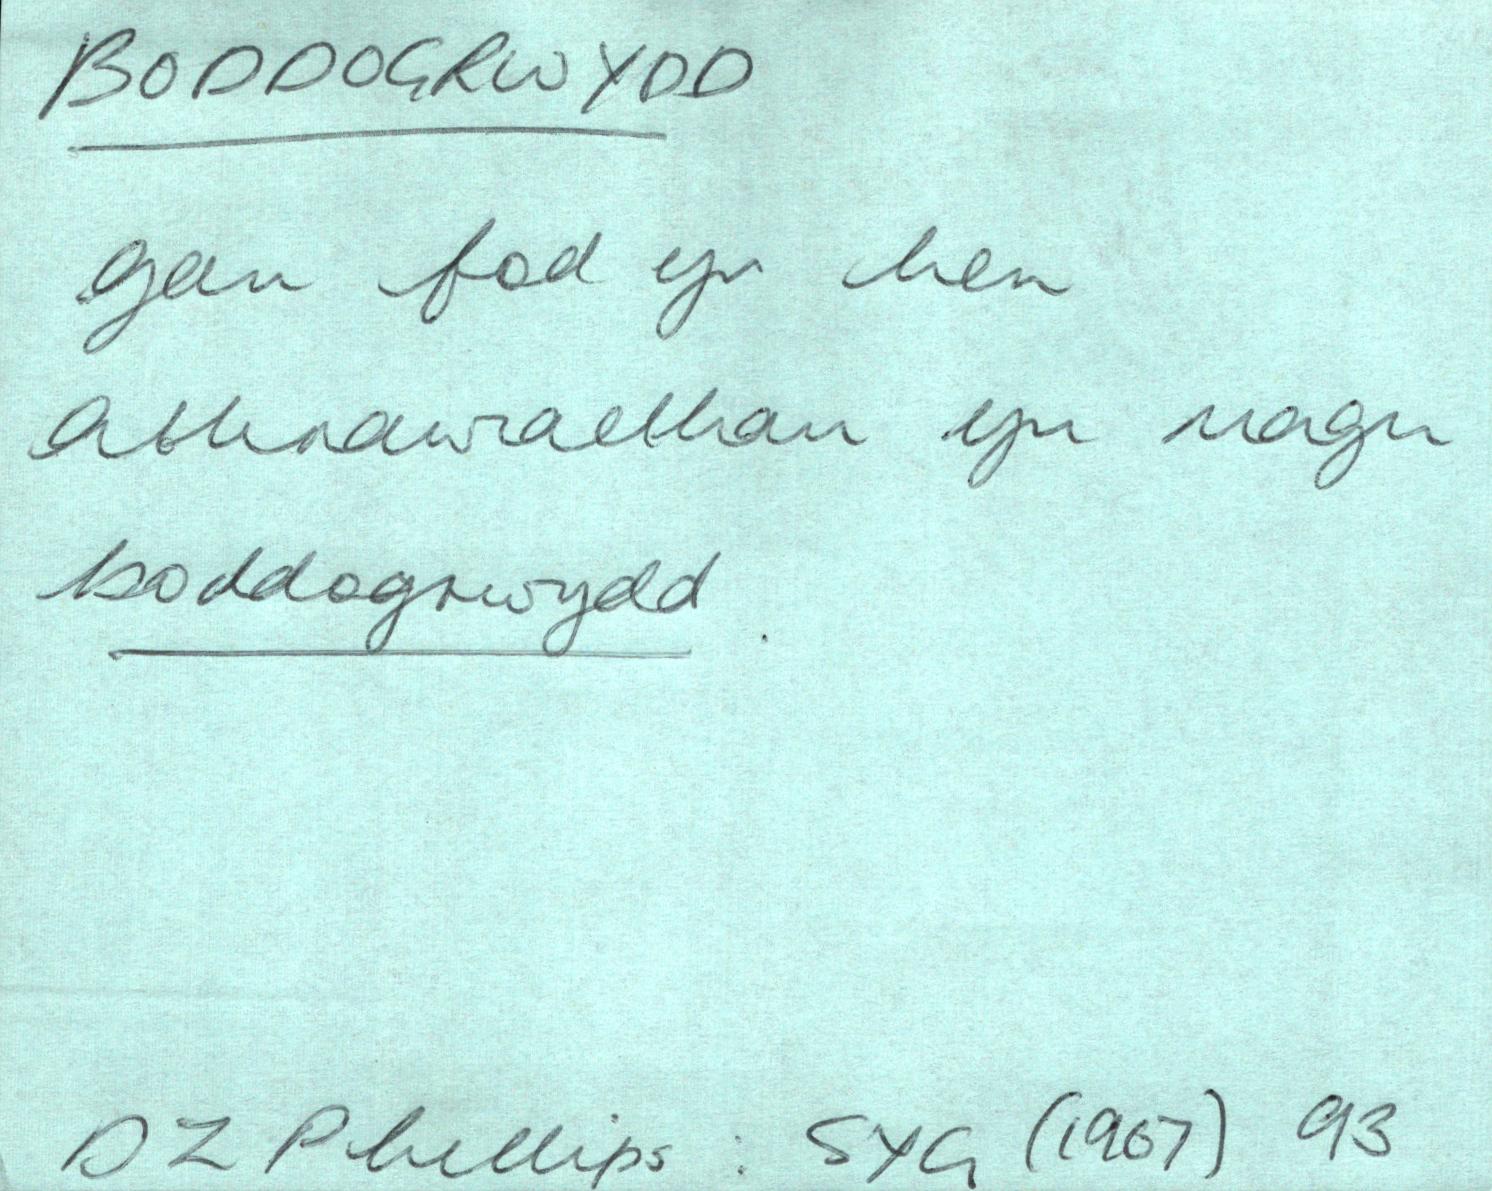 BODDOGRWYDD
gan fod yr hen
athrawiaethau yn magu
boddogrwydd.
DZ Phillips : SYG (1967) 93